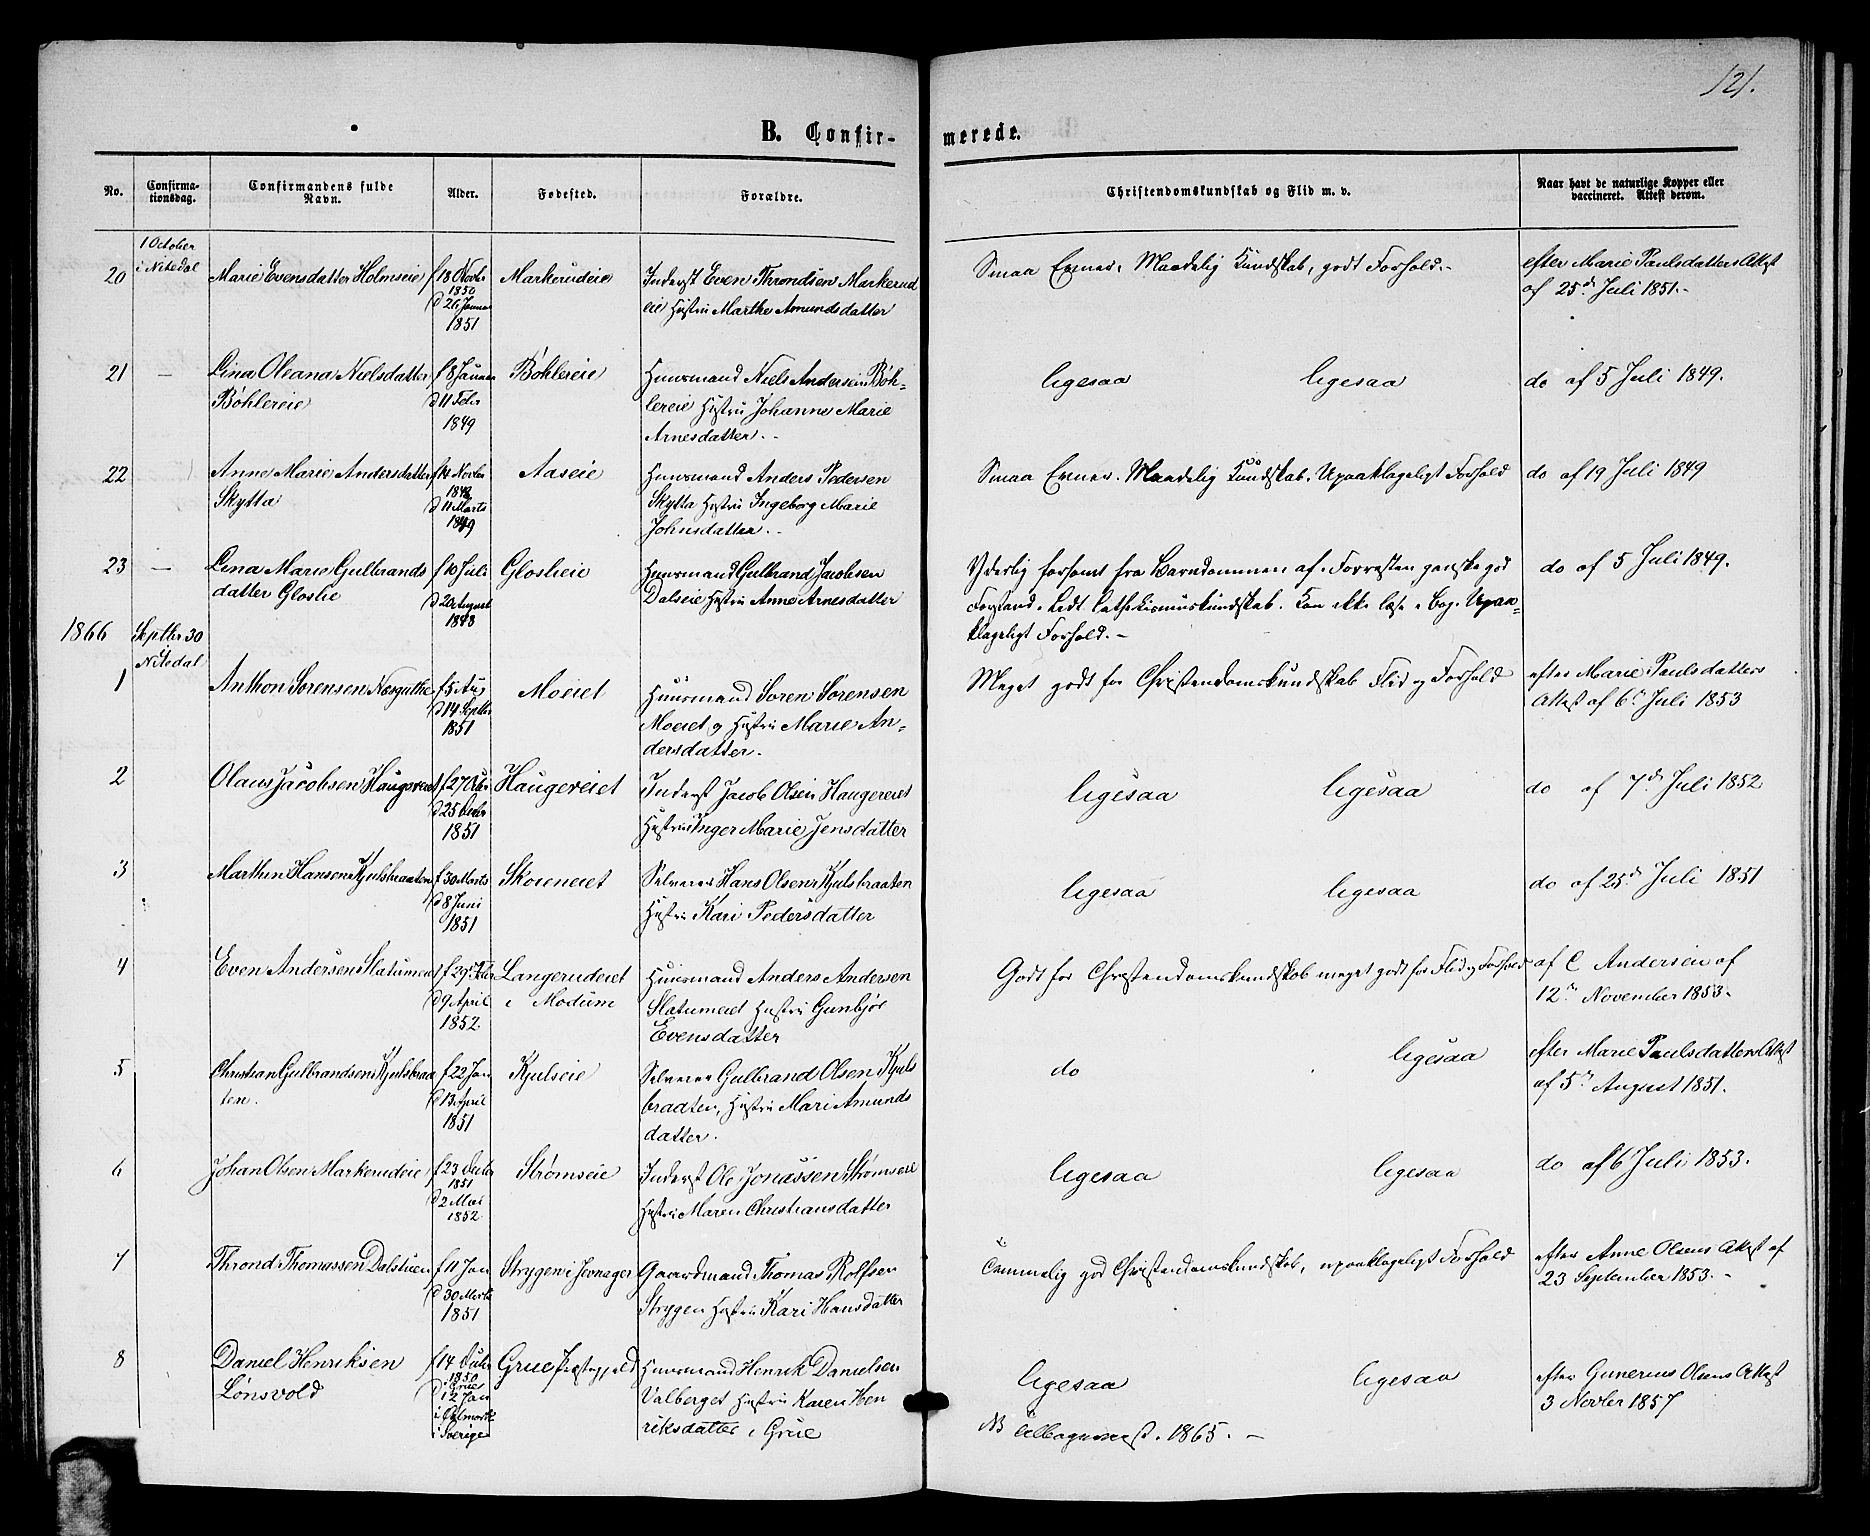 121.
B. Confir-
merede.
No.
Confirma-
tionsdag.
Confirmandens fulde
Navn.
Alder.
Fødested.
Forældre.
Christendomskundskab og Flid m. v.
Naar havt de naturlige Kopper eller
vaccineret. Attest derom.
1 October
i Nitedal
20
Marie Evensdatter Holmseie
f 18 Novbr
1850
d 26 Januar
1851
Markerudeie
Inderst Even Throndsen Markerud
eie Hustru Marthe Amundsdatter
Smaa Evner. Maadelig Kundskab, godt Forhold.-
efter Marie Paulsdatters Attest
af 25de Juli 1851.-
21
—
Lina Oleana Nielsdatter
Bøhlereie
f 8 Januar
d 11 Febr
1849
Bøhlereie
Huusmand Niels Andersen Bøh-
lereie Hustru Johanne Marie
Arnesdatter.-
ligesaa
ligesaa
do af 5 Juli 1849.
22
Anne Marie Andersdatter
Skytta
f 14 Novbr
1848
d 11 Marts
1849
Aaseie
Huusmand Anders Pedersen
Skytta Hustru Ingeborg Marie
Johnsdatter.-
Smaa Evner. Maadelig Kundskab. Upaaklageligt Forhold
do af 19 Juli 1849
23
—
Lina Marie Gulbrands
datter Gloslie
f 10 Juli
d 20 August
1848
Glosheie
Huusmand Gulbrand Jacobsen
Dalseie Hustru Anne Arnesdatter
Yderlig forsømt fra Barndommen af. Forresten ganske god
Forstand. Lidt Cathekismuskundskab. Kan ikke læse i Bog. Upaa-
klageligt Forhold.-
do af 5 Juli 1849.
1866
Septbr 30
Nitedal
1
Anthon Sørensen
f 5 Aug
d 14 Septbr
1851
Moeiet
Huusmand Søren Sørensen
Moeiet og Hustru Marie An-
dersdatter.
Meget godt for Christendomskundskab Flid og Forhold
efter Marie Paulsdatters
Attest af 6te Juli 1853
2
Olaus Jacobsen Haugereiet
f 27 Octbr
d 25 Decbr
1851
Haugereiet
Inderst Jacob Olsen Haugereiet
Hustru Inger Marie Jensdatter
ligesaa
ligesaa
do af 7de Juli 1852
3
Marthin Hansen Kjulsbraaten
f 30 Marts
d 8 Juni
1851
Skoeneiet
Selveier Hans Olsen Kjulsbraaten
Hustru Kari Pedersdatter
ligesaa
ligesaa
do af 25de Juli 1851
4
Even Andersen Slatumeiet
f 29 Febr
d 9 April
1852
Langerudeiet
i Modum
Huusmand Anders Andersen
Slatumeiet Hustru Gunbjør
Evensdatter
Godt for Christendomskundskab meget godt for Flid og Forhold
af C Andersen af
12te November 1853.
5
Christian Gulbrandsen Kjulsbraa
ten.
f 22 Jan
d 13 April
1851
Kjulseie
Selveier Gulbrand Olsen Kjuls
braaten, Hustru Mari Amunds
datter.
do
ligesaa
efter Marie Paulsdatters Attest
af 5te August 1851.
6
Johan Olsen Markerudeie
f 23 Decbr
1851
d 2 Mai
1852
Strømseie
Inderst Ole Jonassen Strømseie
Hustru Maren Christiansdatter
ligesaa
ligesaa
do af 6 Juli 1853.
7
Thrond Thomassen Dalstuen
f 11 Jan
d 30 Marts
1851
Strygen i Jevnager
Gaardmand Thomas Rolfsen
Strygen Hustru Kari Hansdatter
Temmelig god Christendomskundskab, upaaklageligt Forhold
efter Anne Olsens Attest af
23 September 1853.-
8
Daniel Henriksen
Lønsvold
f 14 Decbr
1850
i Grue
d 2 Jan
i Østmark
i Sverige
Grue Prestegjeld
Huusmand Henrik Danielsen
Valberget Hustru Karen Hen
riksdatter i Grue
ligesaa
ligesaa
NB 1865.-
efter Gunerius Olsens Attest
3 Novbr 1857